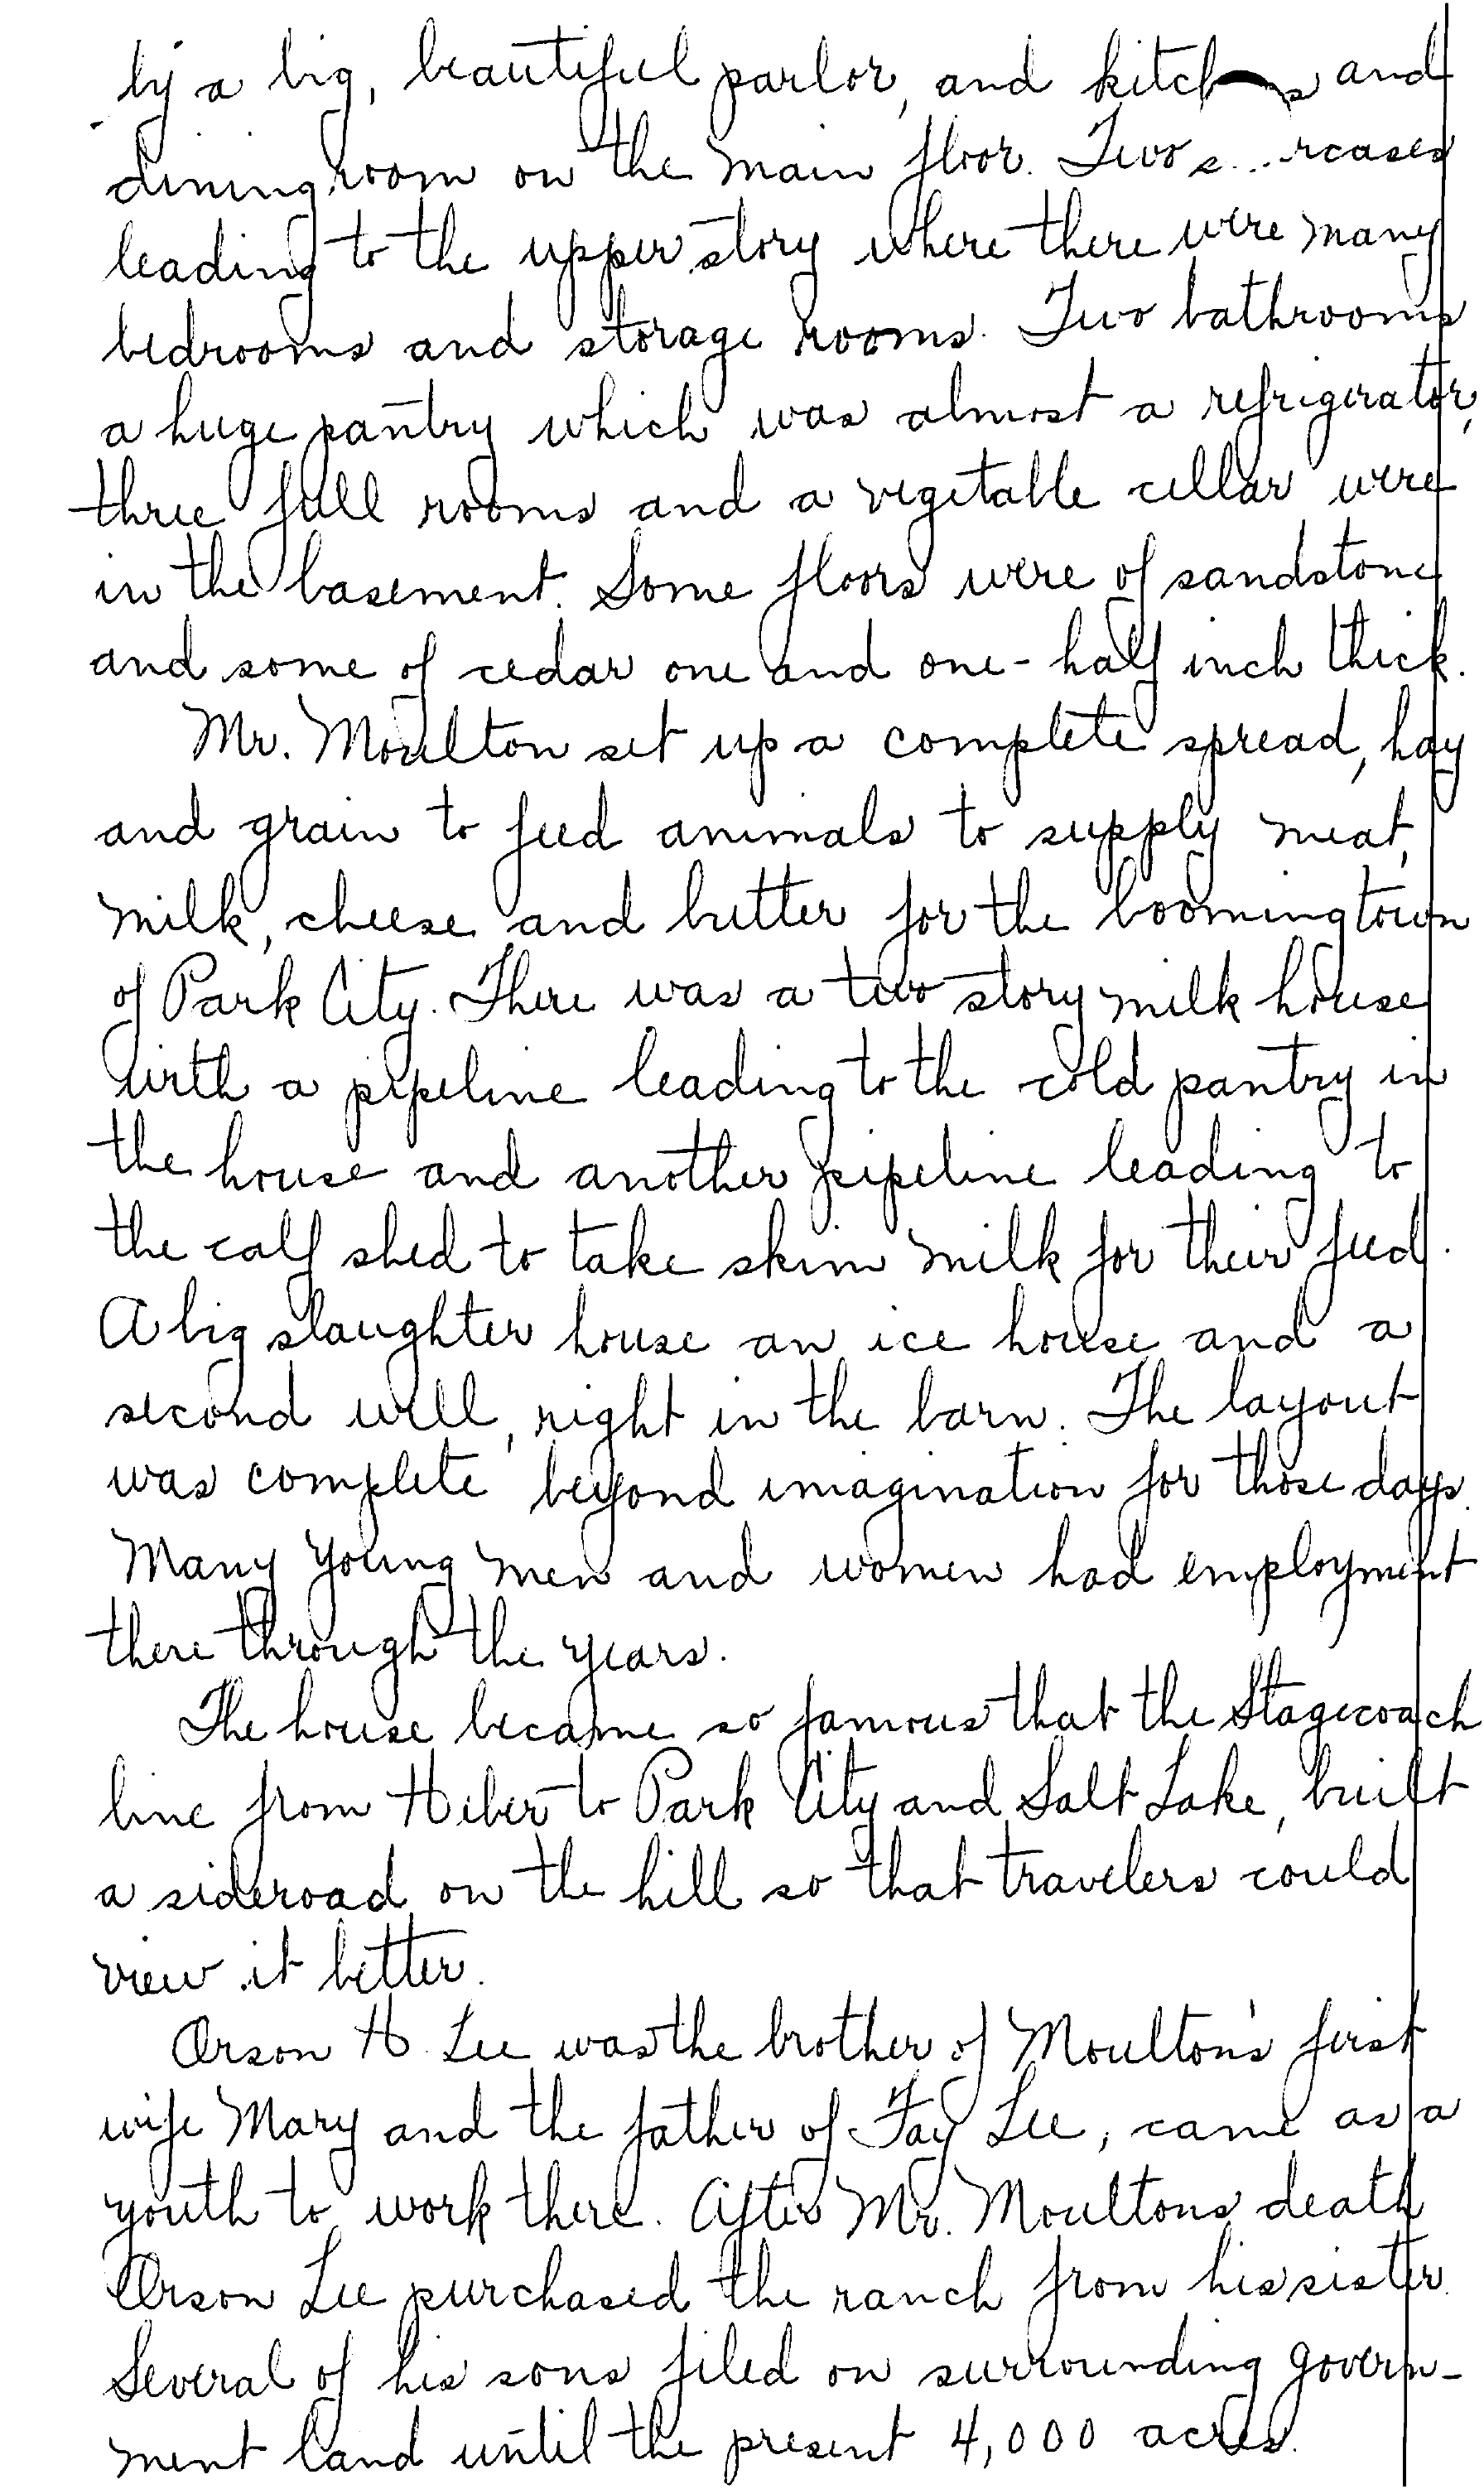 by a big, beautiful parlor, and and
dining room on the main floor. Two
leading to the upper story where there were many
bedrooms and storage rooms. Two bathrooms
a huge pantry which was almost a refrigerator,
three full rooms and a vegetable cellar were
in the basement. Some floors were of sandstone
and some of cedar one and one-half inch thick.
Mr. Moulton set up a complete spread, hay
and grain to feed animals to supply meat,
milk, cheese and butter for the booming town
of Park City. There was a two story milk house
with a pipeline leading to the cold pantry in
the house and another pipeline leading to
the calf shed to take skim milk for their feed.
A big slaughter house an ice house and a
second well, right in the barn. The layout
was complete beyond imagination for those days.
Many young men and women had employment
there through the years.
The house became so famous that the Stagecoach
line from Heber to Park City and Salt Lake, built
a sideroad on the hill so that travelers could
view it better.
Orson H. Lee was the brother of Moulton's first
wife Mary and the father of Fay Lee, came as a
youth to work there. After Mr. Moultons death
Orson Lee purchased the ranch from his sister.
Several of his sons filed on surrounding govern-
ment land until the present 4,000 acres.